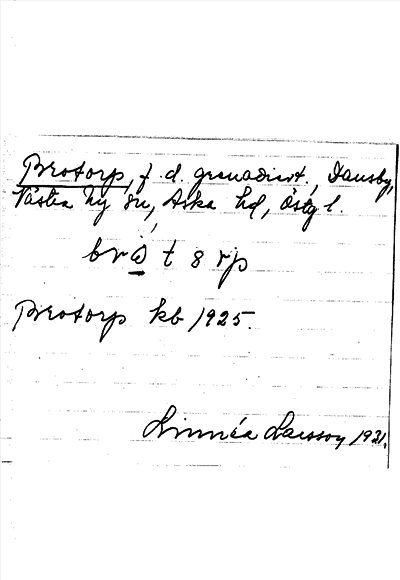 Brotorp, f. d. grenadiert., Dansby,
Västra Ny sn, Aska hd, Östg l.
brò t ȣ rp
Brotorp kb 1925.
Linnéa Larsson 1931.